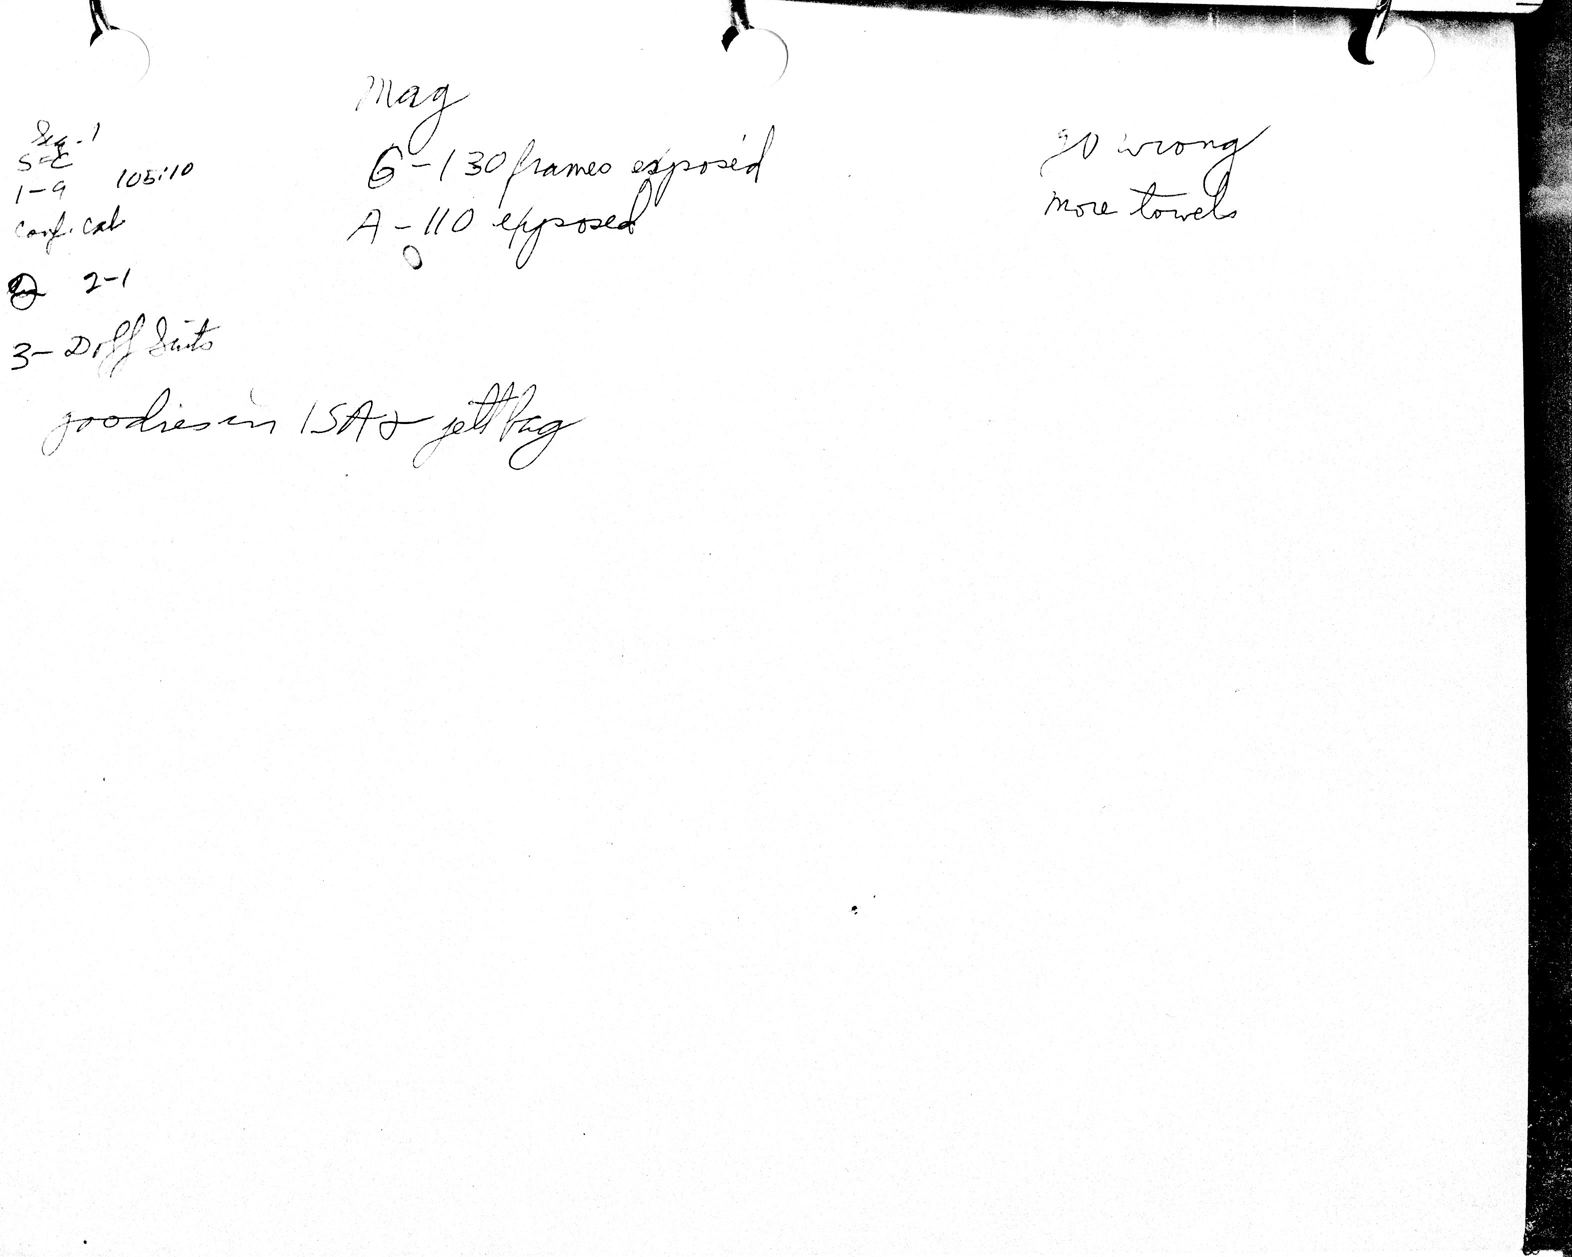 Mag
Seq. 1
S=C
1-9 105:10
G-130 frames exposed
go wrong
Conf. Cab
A-110 exposed
more towels
2-1
3- Doff Suits
goodies in ISA & jett bag